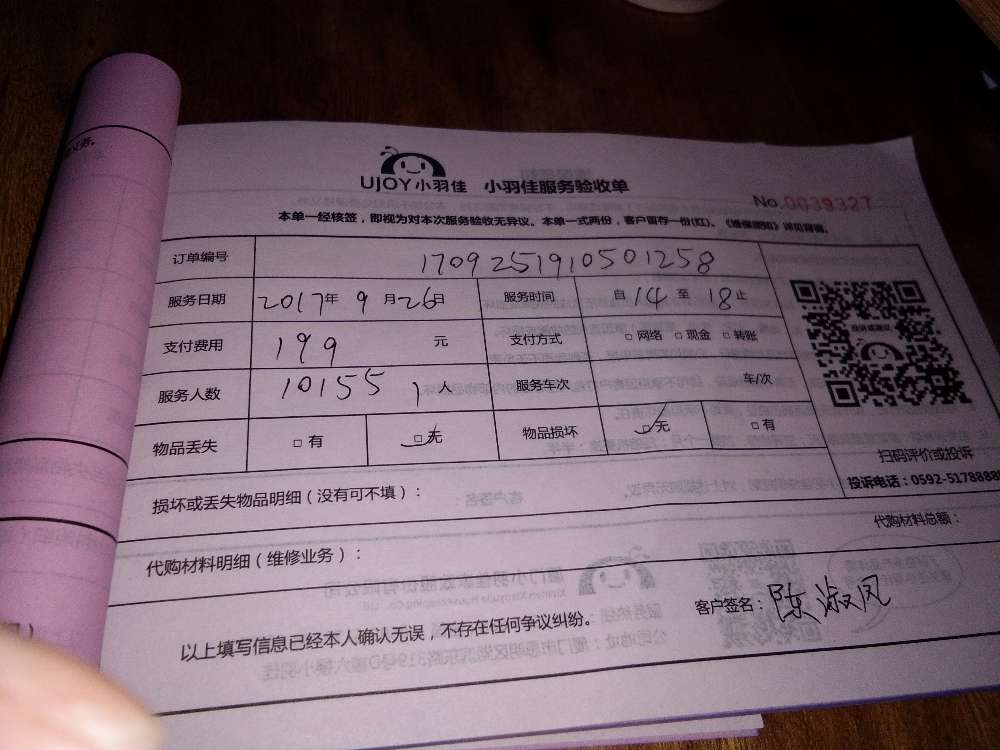 UJOY小羽佳 小羽佳服务验收单
No.0039327
本单一经核签，即视为对本次服务验收无异议。本单一式两份，客户留存一份(红)。《维保须知》详见背面。
订单编号 1709251910501258
服务日期 2017年 9 月26日 服务时间 自 14 至 18止
支付费用 199 元 支付方式 □ 网络 □ 现金 □ 转账
服务人数 10155 1人 服务车次 车/次
物品丢失 □ 有 □无 物品损坏 □无 □ 有
扫码评价或投诉
投诉电话：0592-5178888
损坏或丢失物品明细（没有可不填）：
代购材料总额：
代购材料明细（维修业务）：
客户签名：陈淑凤
以上填写信息已经本人确认无误，不存在任何争议纠纷。